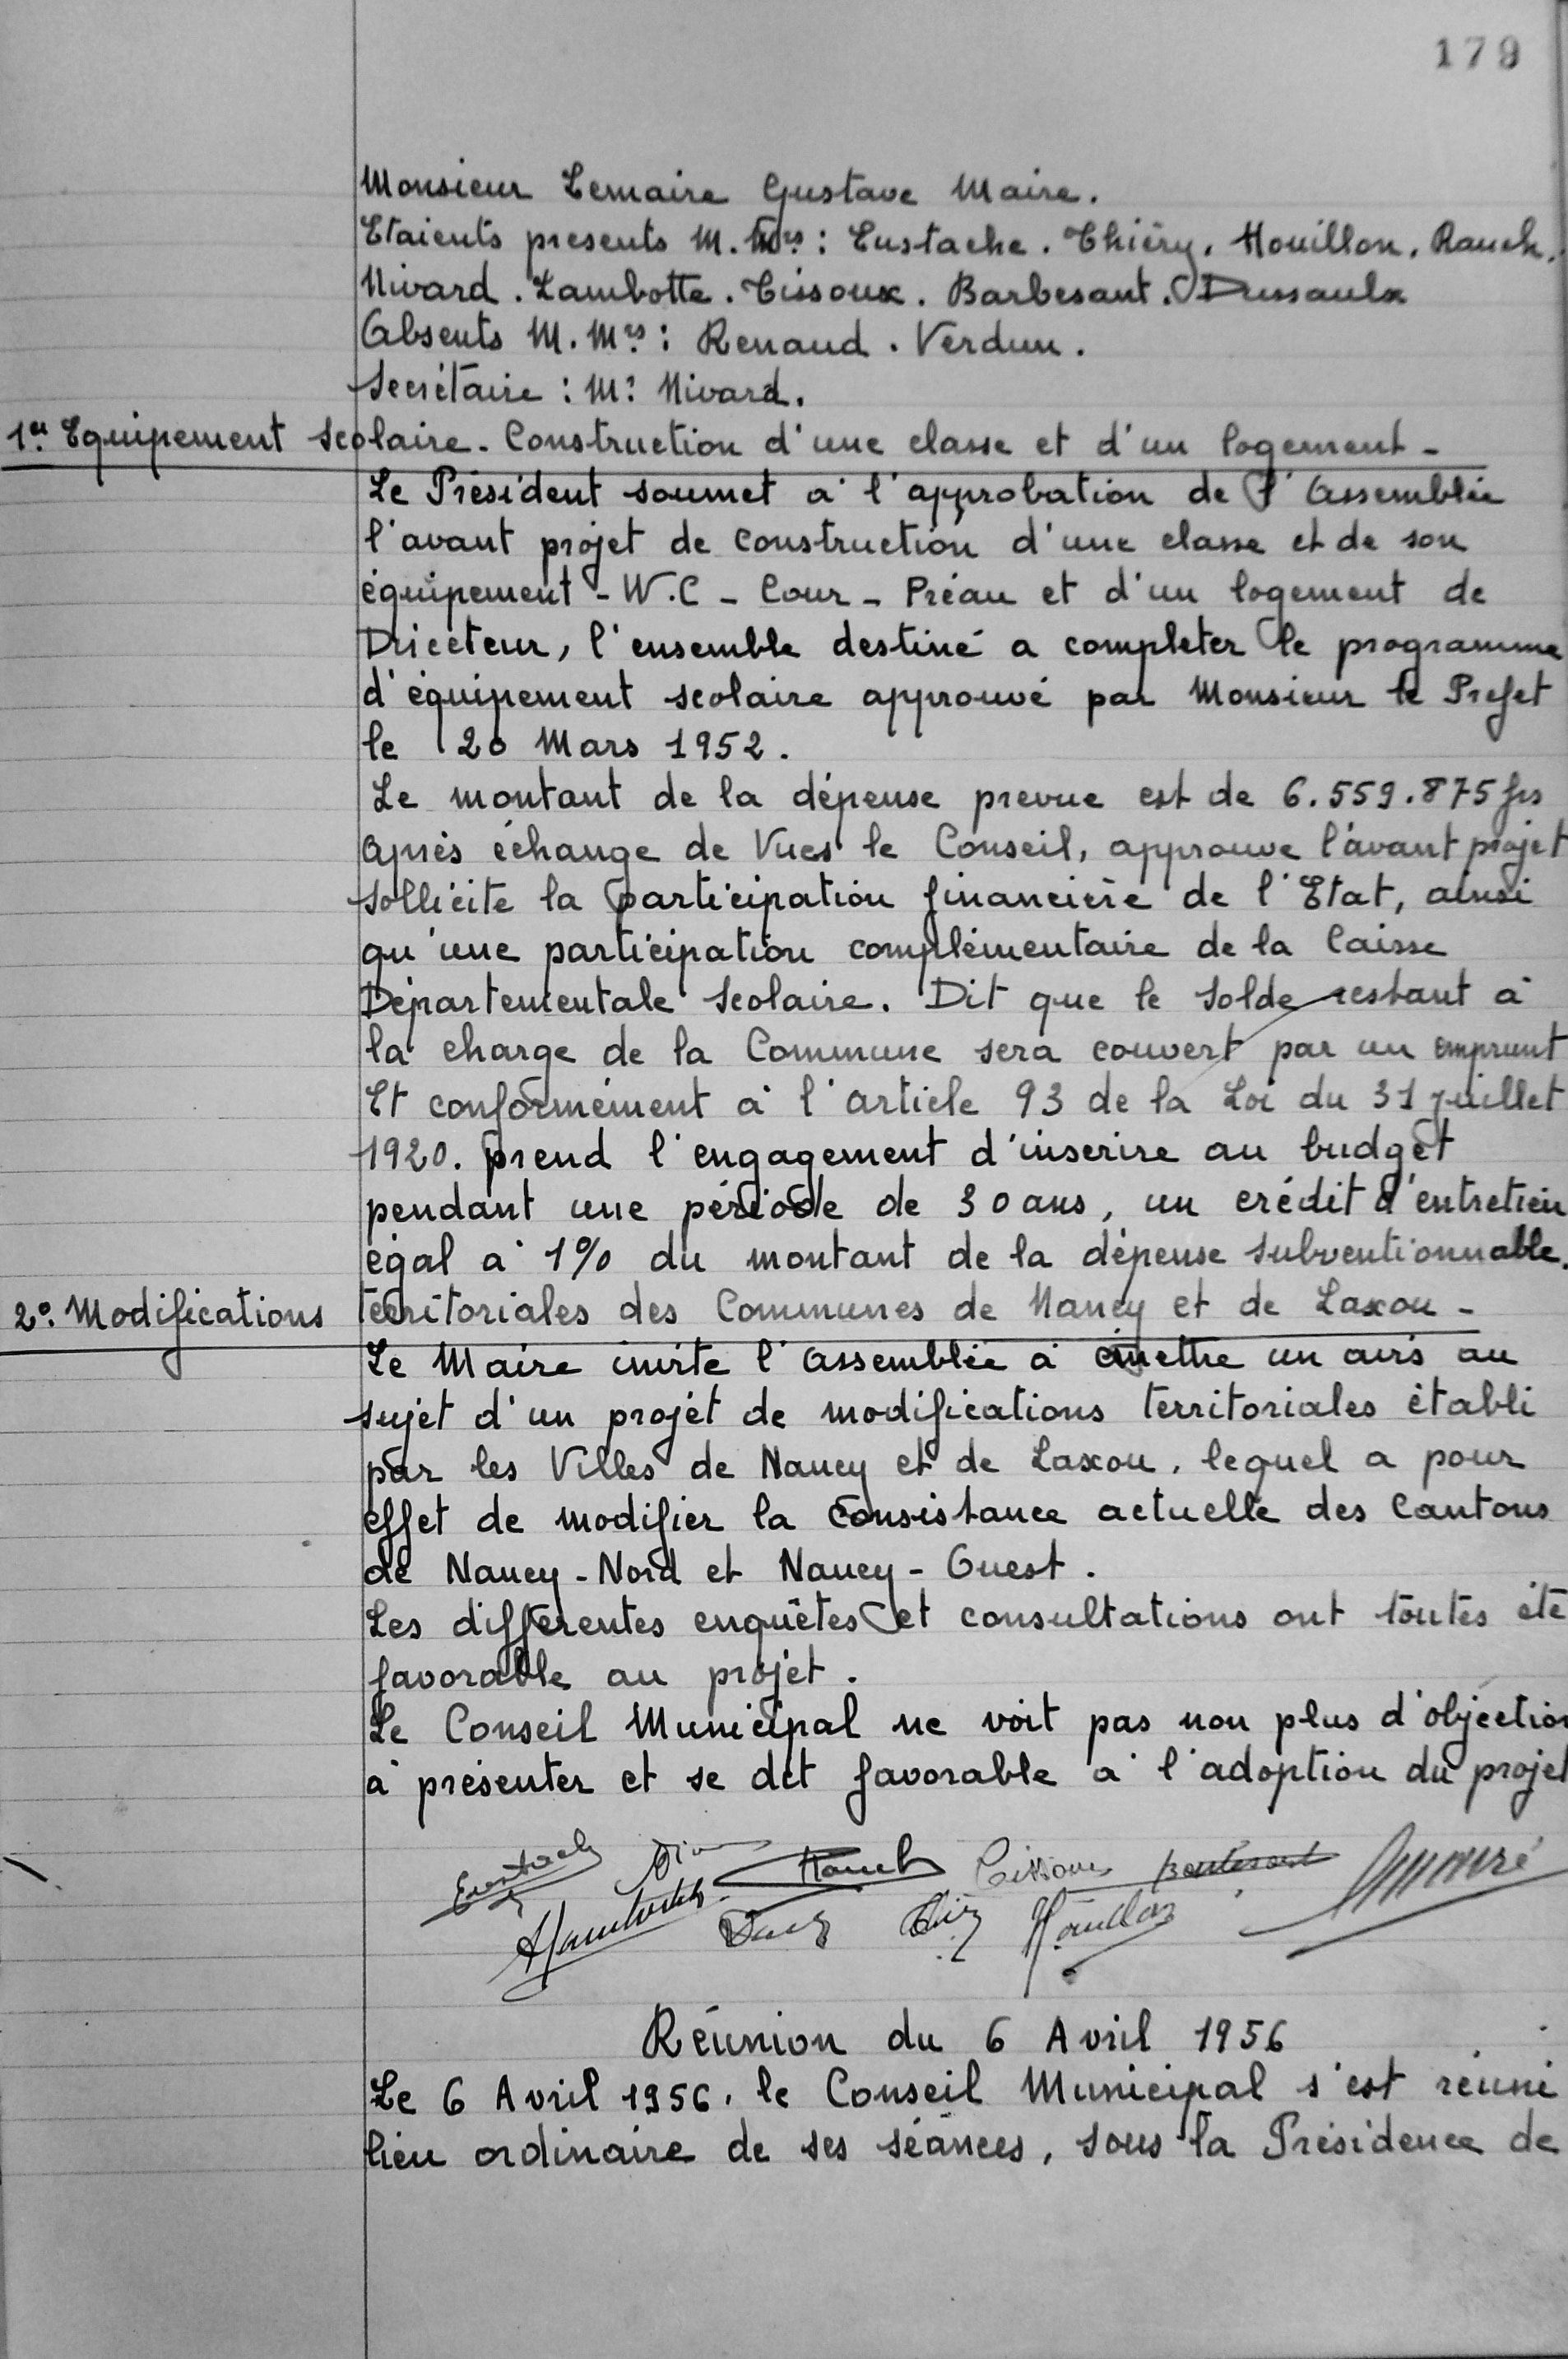 179
Monsieur Lemaire Gustave Maire.
Etaients presents M. Mrs : Eustache. Thiéry. Houillon. Rauch.
Nivard. Lambotte. Tissoux. Barbesant. Dussaulx
Absents M. Mrs : Renaud. Verdun.
Secrétaire : Mr Nivard.
1er Equipement scolaire - Construction d'une classe et d'un logement -
Le Président soumet à l'approbation de l'Assemblée
l'avant projet de construction d'une classe et de son
équipement - W.C - Cour - Préau et d'un logement de
Driecteur, l'ensemble destiné a completer le programme
d'équipement scolaire approuvé par Monsieur le Prefet
le 20 Mars 1952.
Le montant de la dépense prevue est de 6.559.875 frs
Après échange de Vues le Conseil, approuve l'avant projet
sollicite la participation financière de l'Etat, ainsi
qu'une participation complémentaire de la Caisse
Départementale Scolaire. Dit que le solde restant à
la charge de la Commune sera couvert par un emprunt
Et conformément à l'article 93 de la Loi du 31 juillet
1920. prend l'engagement d'inscrire au budget
pendant une période de 30 ans, un crédit d'entretien
égal à 1% du montant de la dépense subventionnable.
2o. Modifications territoriales des Communes de Nancy et de Laxou -
Le Maire invite l'Assemblée à émettre un avis au
sujet d'un projet de modifications territoriales établi
par les Villes de Nancy et de Laxou, lequel a pour
effet de modifier la consistance actuelle des Cantons
de Nancy - Nord et Nancy - Ouest.
Les differentes enquêtes et consultations ont toutes été
favorable au projet.
Le Conseil Municipal ne voit pas non plus d'objection
à présenter et se dit favorable à l'adoption du projet
Rauch Tissoux Barbesant
Houillon
Réunion du 6 Avril 1956
Le 6 Avril 1956, le Conseil Municipal s'est réuni
lieu ordinaire de ses séances, sous la Présidence de